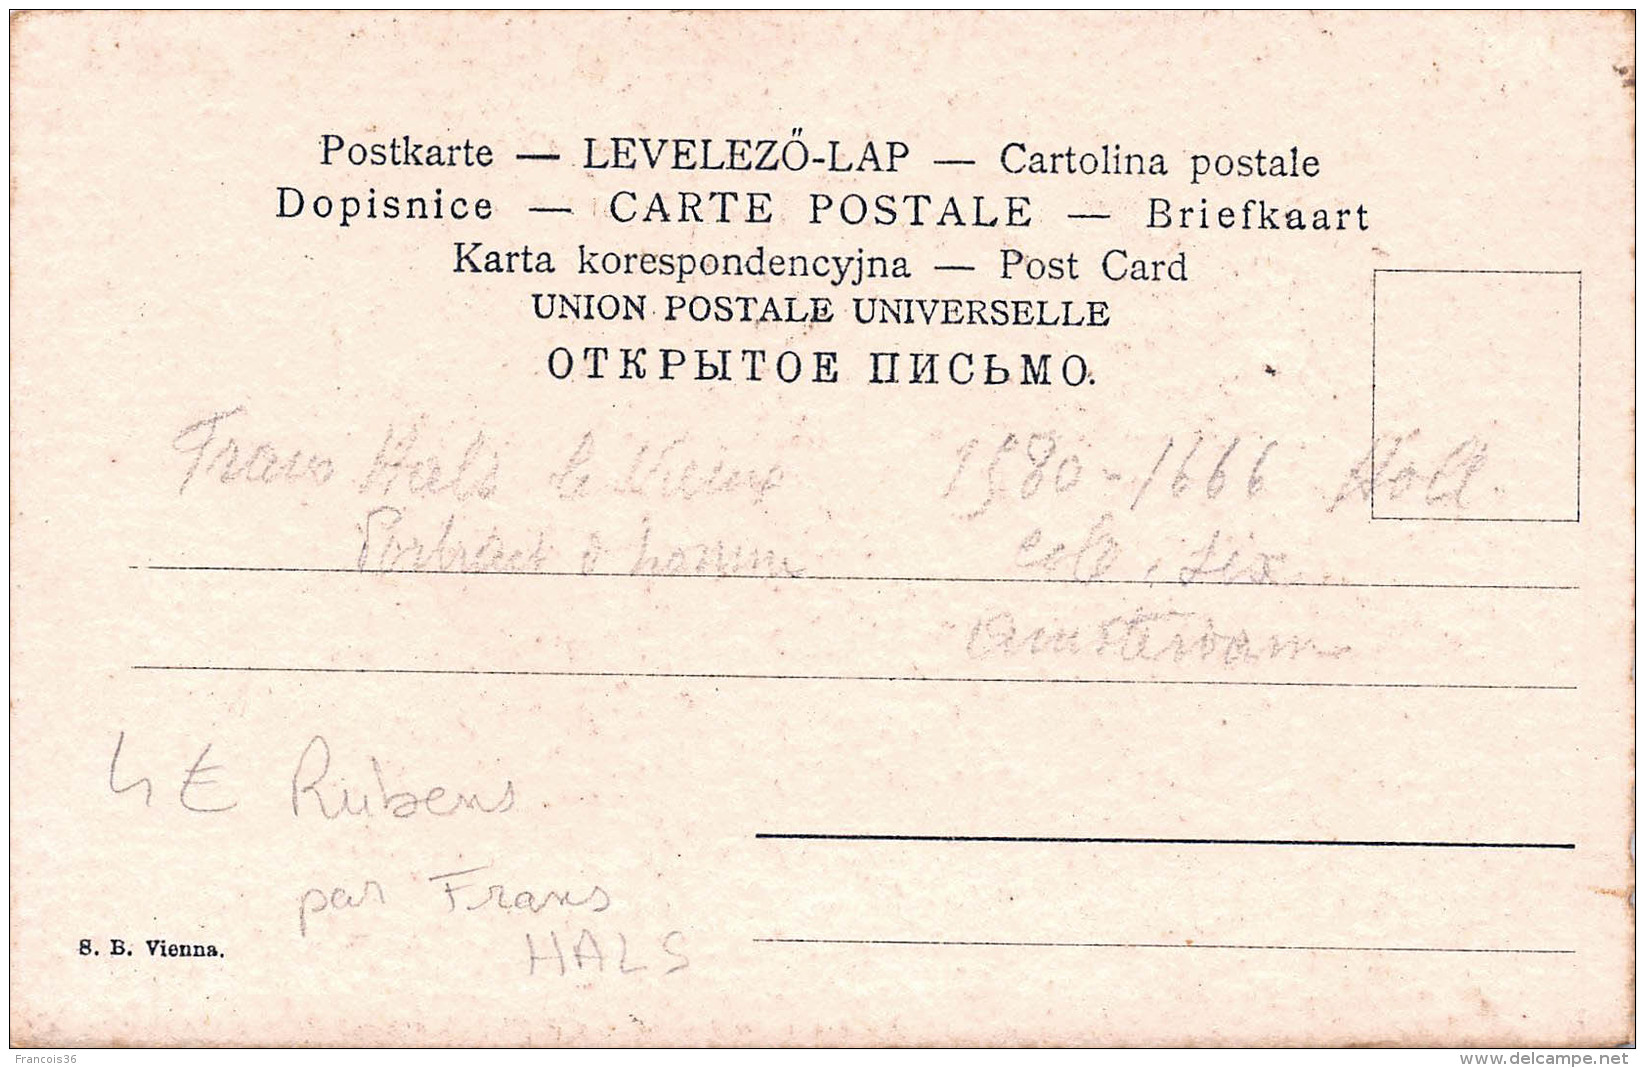 Postkarte — LEVELEZŐ-LAP — Cartolina postale
Dopisnice — CARTE POSTALE — Briefkaart
Karta korespondencyjna — Post Card
UNION POSTALE UNIVERSELLE
ОТКРЫТОЕ ПИСЬМО.
Frans Hals le Vieux 1580-1666 Holl.
Portrait d homme Coll. Six
Amsterdam
4 € Rubens
par Frans
HALS
S. B. Vienna.
Francois36
www.delcampe.net